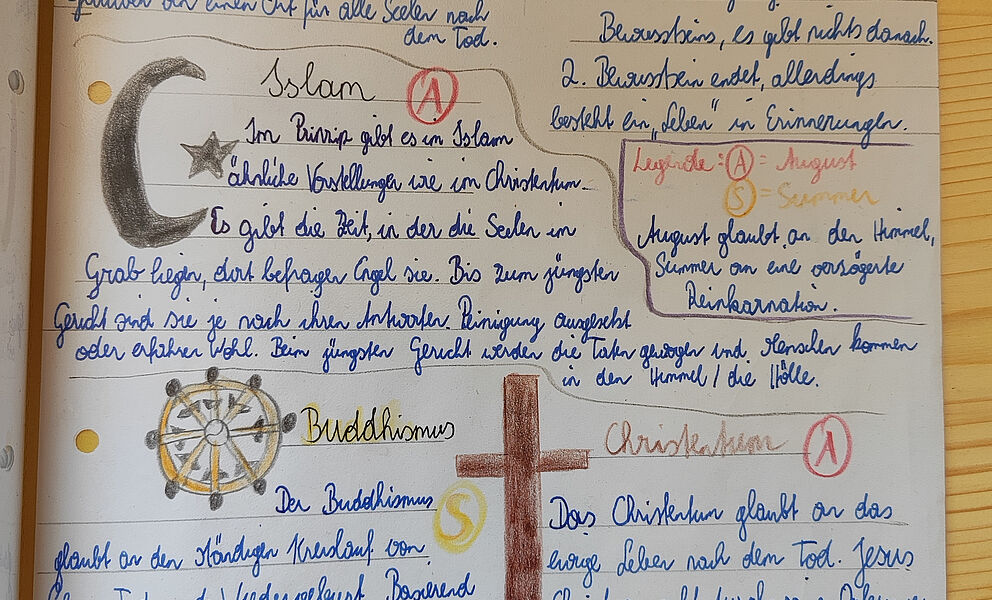 glauben an einen Ort für alle Seelen nach
dem Tod.
Bewusstseins, es gibt nichts danach.
2. Bewusstsein endet, allerdings
besteht ein "Leben" in Erinnerungen.
Islam A
Im Prinzip gibt es im Islam
ähnliche Vorstellungen wie im Christentum.
Es gibt die Zeit, in der die Seelen im
Grab liegen, dort befragen Engel sie. Bis zum jüngsten
Gericht sind sie je nach ihren Antworten Peinigung ausgesetzt
oder erfahren Wohl. Beim jüngsten Gericht werden die Taten gewogen und Menschen kommen
in den Himmel / die Hölle.
Legende: A = August
S = Summer
August glaubt an den Himmel,
Summer an eine verzögerte
Reinkarnation.
Buddhismus
S
Der Buddhismus
glaubt an den ständigen Kreislauf von
Basierend
Christentum A
Das Christentum glaubt an das
ewige Leben nach dem Tod. Jesus